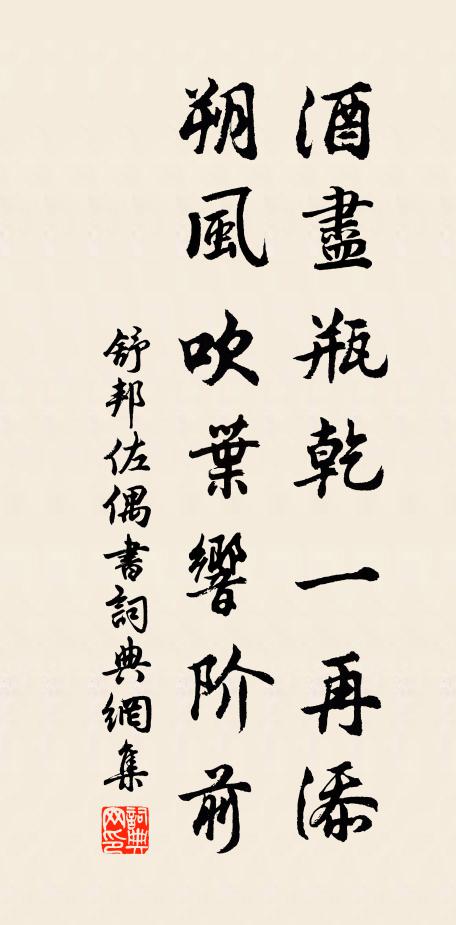 酒盡瓶乾一再添
朔風吹葉響阶前
舒邦佐偶書詞典網集
詞典網印